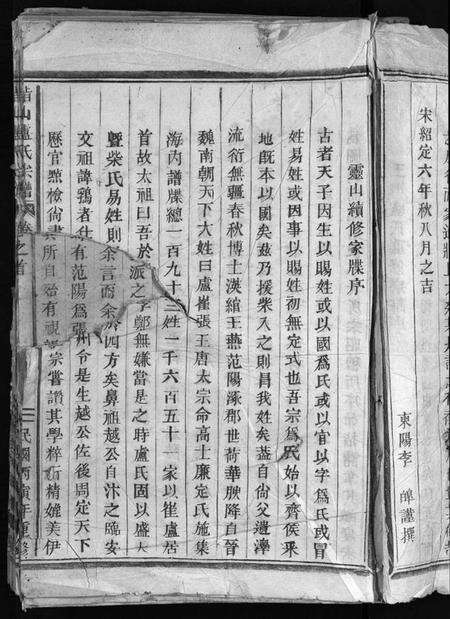 宋紹定六年秋八月之吉
東陽李 謹撰
靈山續修家牒序
古者天子因生以賜姓或以國為氏或以官以字為氏或冒
姓易姓或因事以賜姓初無定式也吾宗為氏始以齊侯釆
地旣本以國矣茲乃援柴入之則昌我姓矣葢自尙父遺澤
流衍無疆春秋博士漢綰王燕范陽涿郡世荷華腴降自晉
魏南朝天下大姓曰盧崔張王唐太宗命高士廉定氏族集
海內譜牒緫一百九十三姓一千六百五十一家以崔盧居
首故太祖曰吾於 派之 鄭無嫌當是之時盧氏固以盛大
曁柴氏易姓則 余言而余 四方矣鼻祖越公自汴之臨安
文祖諱 者仕 有范陽為 令是生越公佐後周定天下
歷官 檢尙書 所自 有 宗嘗讃其學粹 精媲美伊
山盧氏宗譜 卷之首
民國丙寅年重修